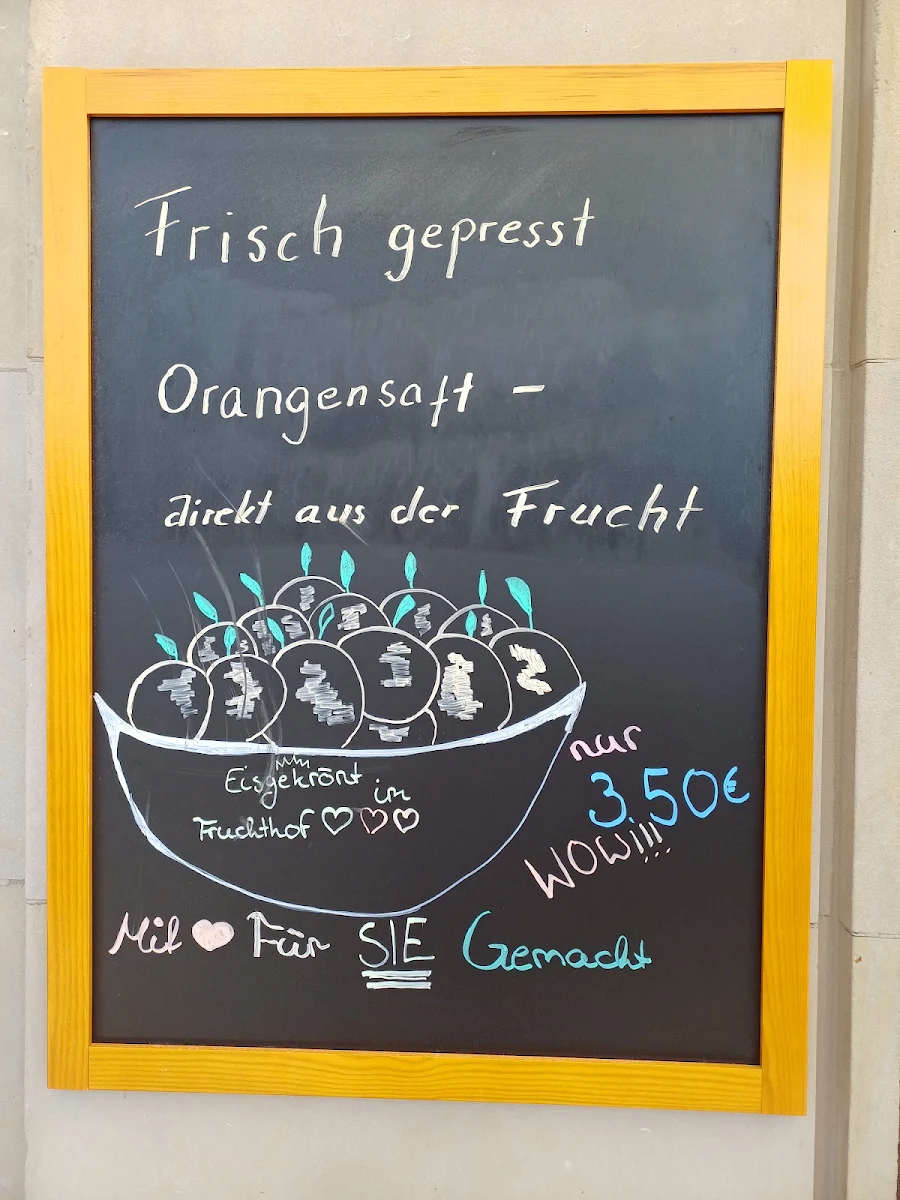 Frisch gepresst
Orangensaft -
direkt aus der Frucht
Eisgekrönt im
Fruchthof ♡♡♡
nur
3,50€
WOW!!!
Mit ♥ Für SIE Gemacht